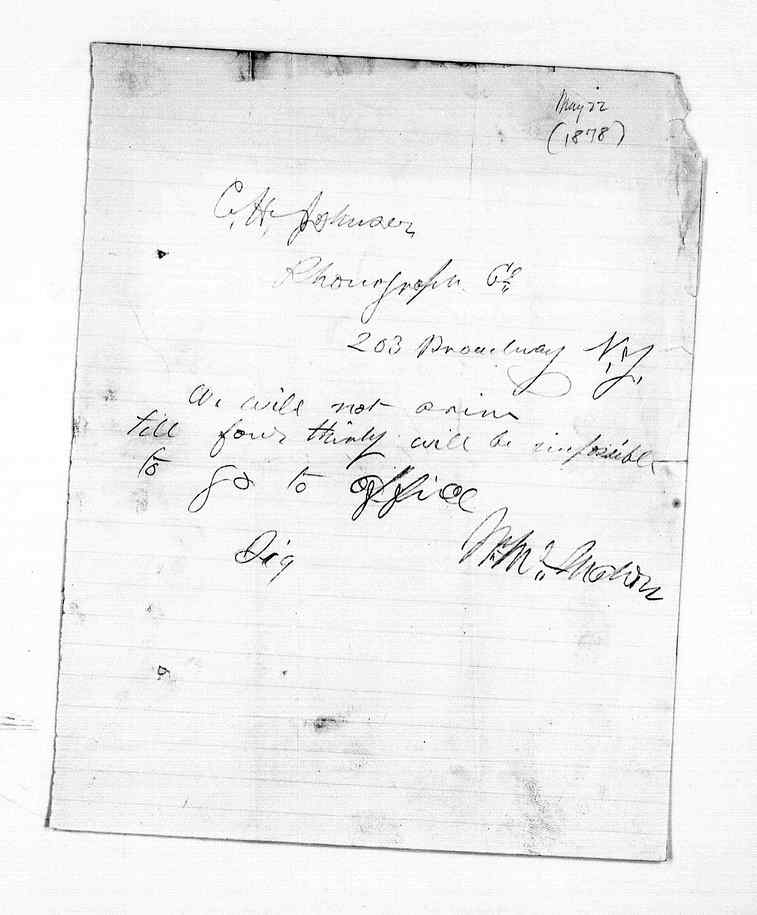 May 22
(1878)
C. H. Johnson
Phonograph Co
203 Broadway N.Y.
We will not arive
till four thirty will be impossible
to go to office
Sig